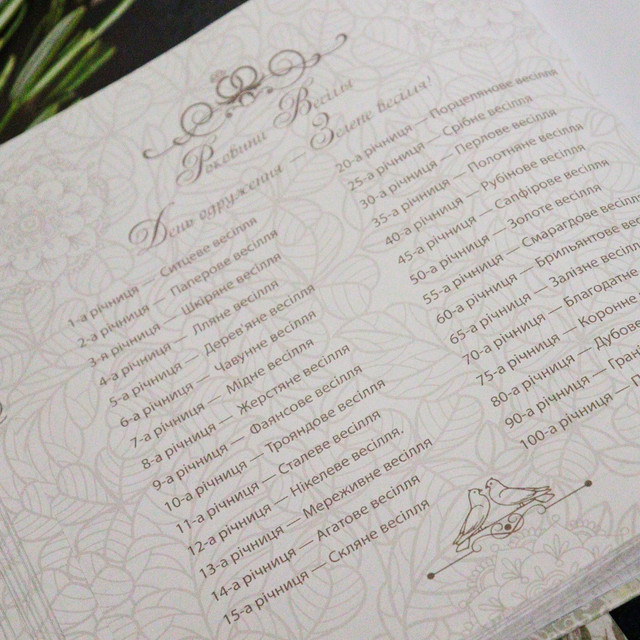 День одруження — Зелене весілля!
1-а річниця — Ситцеве весілля
2-а річниця — Паперове весілля
3-а річниця — Шкіряне весілля
4-а річниця — Лляне весілля
5-а річниця — Дерев'яне весілля
6-а річниця — Чавунне весілля
7-а річниця — Мідне весілля
8-а річниця — Жерстяне весілля
9-а річниця — Фаянсове весілля
10-а річниця — Трояндове весілля
11-а річниця — Сталеве весілля
12-а річниця — Нікелеве весілля
13-а річниця — Мереживне весілля
14-а річниця — Агатове весілля
15-а річниця — Скляне весілля
20-а річниця — Порцелянове весілля
25-а річниця — Срібне весілля
30-а річниця — Перлове весілля
35-а річниця — Полотняне весілля
40-а річниця — Рубінове весілля
45-а річниця — Сапфірове весілля
50-а річниця — Золоте весілля
55-а річниця — Смарагдове весілля
60-а річниця — Брильянтове
65-а річниця — Залізне
70-а річниця — Благодатне
75-а річниця — Коронне
80-а річниця — Дубове
90-а річниця —
100-а річниця —